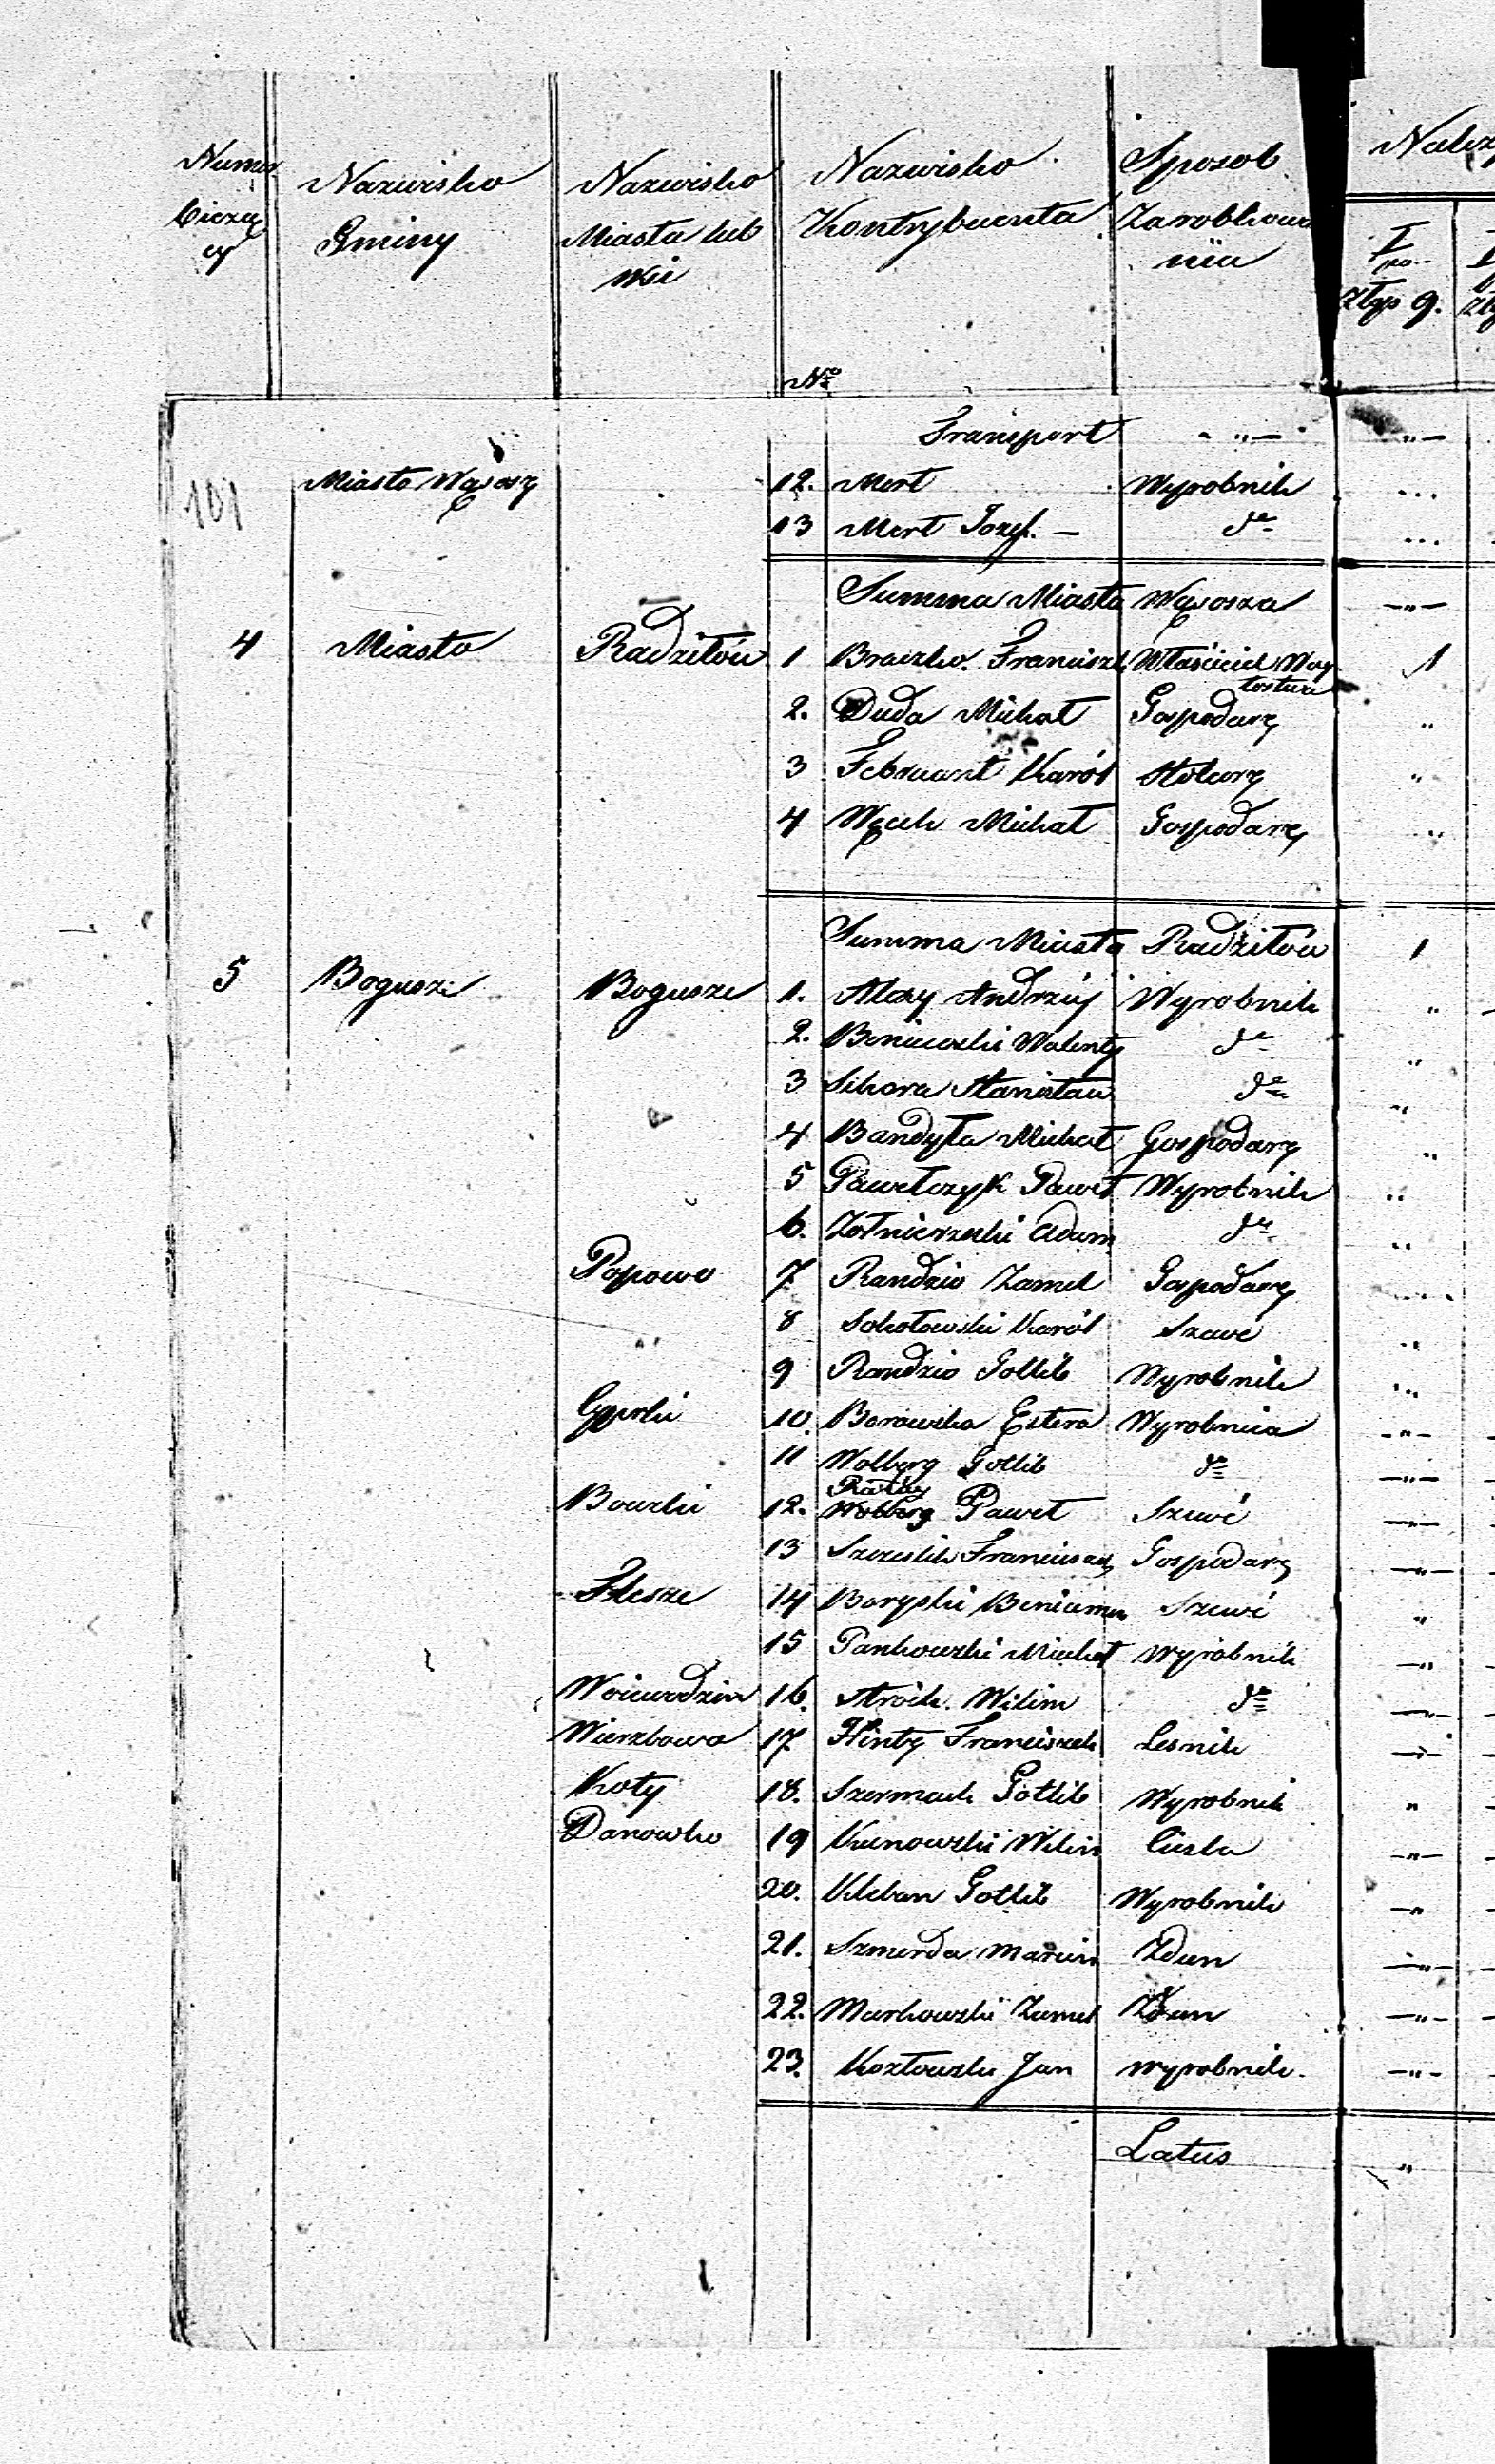 Numer bieżący
Nazwisko Gminy
Nazwisko Miasta lub wsi
Nazwisko Kontrybuenta
Sposob Zarobkowania
I
Złtp g.
No
Transport " —
101 Miasto Wąsosz 12. Mert Wyrobnik
13 Mert Jozef. — do
Summa Miasta Wąsosza — " —
4 Miasto Radziłów 1 Braczko Franciszek Właściciel 1
2. Duda Michał Gospodarz "
3 Februant Karól Stolarz "
4 Węch Michał Gospodarz "
Summa Miasta Radziłów 1
5 Bogusze Bogusze 1. Alozy Andrzej Wyrobnik "
2. Beniewski Walenty do "
3 Sikora Stanisław do "
4 Bandyła Michał Gospodarz "
5 Pawełczyk Paweł Wyrobnik "
6. Zołnierzski Adam do "
Popowo 7 Randzio Zamel Gospodarz
8 Sokołowski Karól Szewc "
9 Randzio Gotlib Wyrobnik
10. Borowska Estera Wyrobnica — " —
11 Wolberg Gotlib do — " —
Bowzki 12. Wolberg Paweł Szewc — " —
13 Szczeslik Franciszek Gospodarz — " —
Flesze 14 Boryski Beniamin Szewc "
15 Pankowski Michał Wyrobnik — "
Woiewodzin 16. Wilim do — " —
Wierzbowo 17 Hintz Franciszek Lesnik — " —
Koty 18. Szermach Gotlib Wyrobnik "
Danowko 19 Kunowski Wilim Ciesla — " —
20. Kleban Gotlib Wyrobnik — "
21. Szmerda Marcin Zdun — " —
22. Markowski Zamel Zdun — " —
23. Kozłowski Jan wyrobnik — " —
Latus "